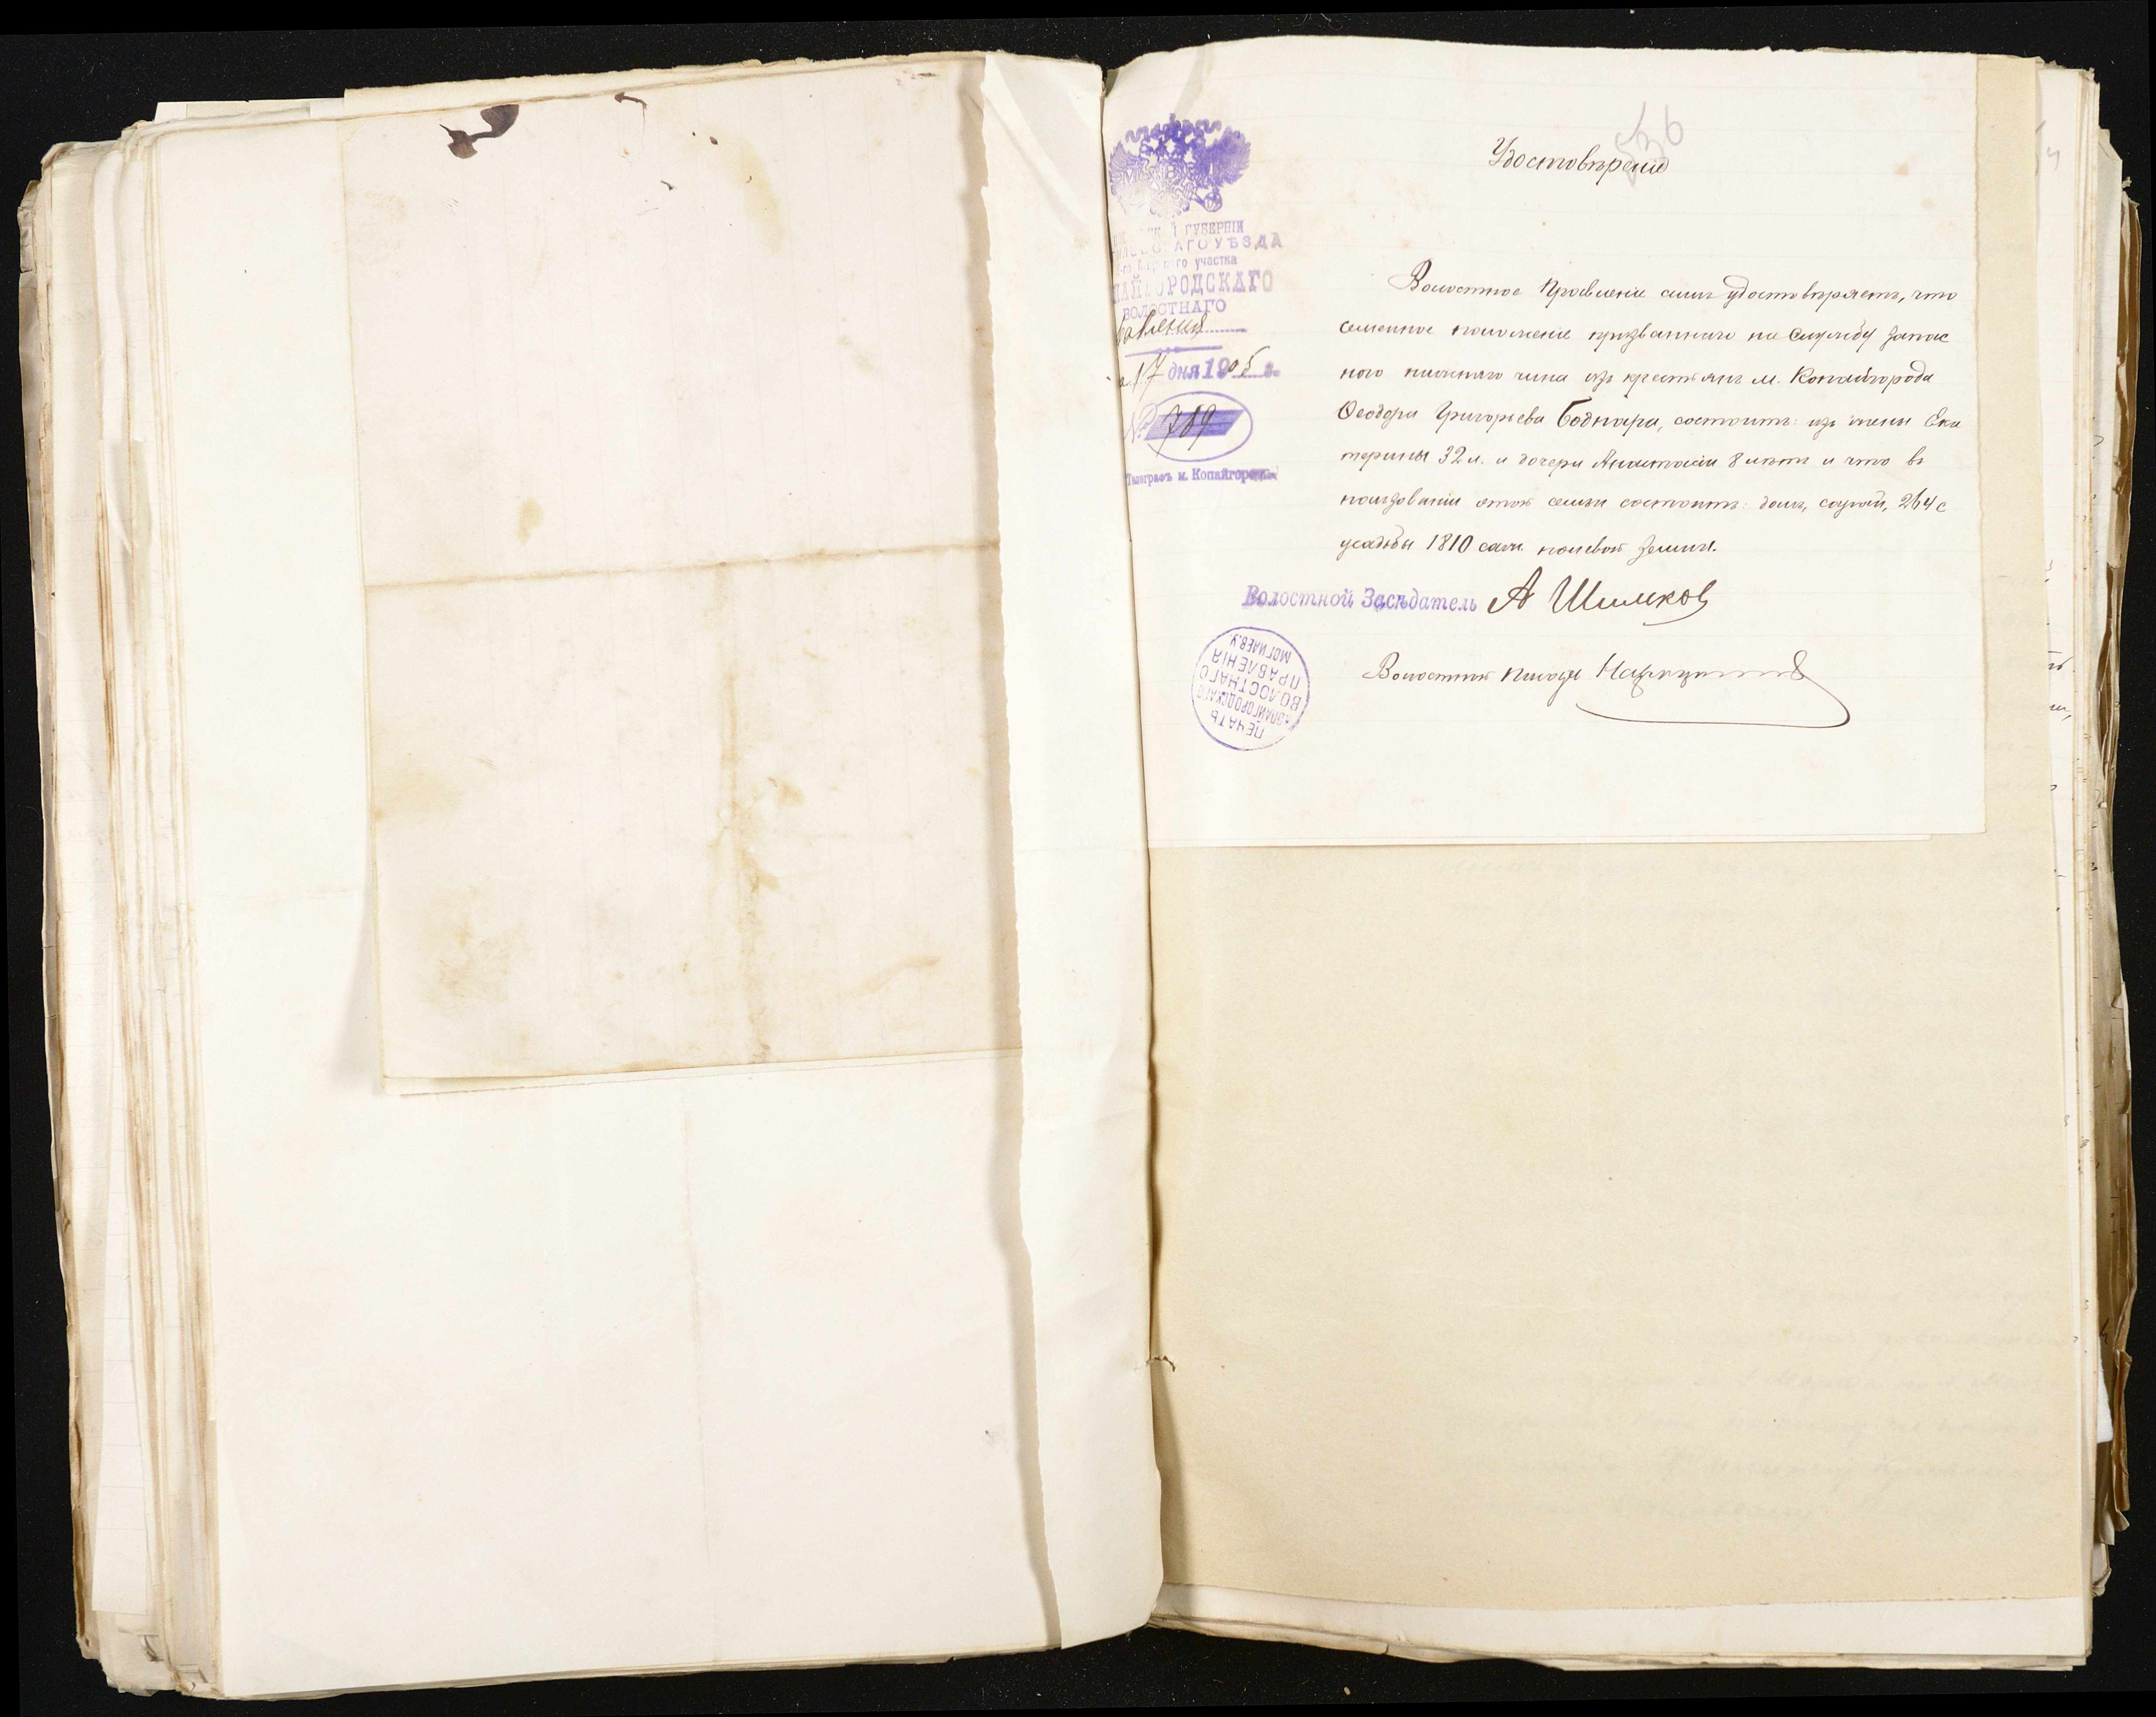 536
Удостовѣреніе
М В Д
ГУБЕРНІИ
УѢЗДА
участка
ПАЙГОРОДСКАГО
ВОЛОСТНАГО
Правленія
17 дня 1905 г.
№ 789
Телеграфъ м. Копайгородъ
Волостное Правленіе симъ удостовѣряетъ, что
семейное положеніе призваннаго на службу запас
ного нижняго чина изъ крестьянъ м. Копайгорода
Ѳеодора Григорьева Боднара, состоитъ: изъ жены Ека
терины 32 л. и дочери Анастасіи 8 лѣтъ и что въ
пользованіи этой семьи состоитъ: домъ, сарай, 264 с
усадьбы 1810 саж. полевой земли.
Волостной Засѣдатель А Шимков
Волостной писарь
ПЕЧАТЬ
КОПАЙГОРОДСКАГО
ВОЛОСТНАГО
ПРАВЛЕНІЯ
МОГИЛЕВ.У.